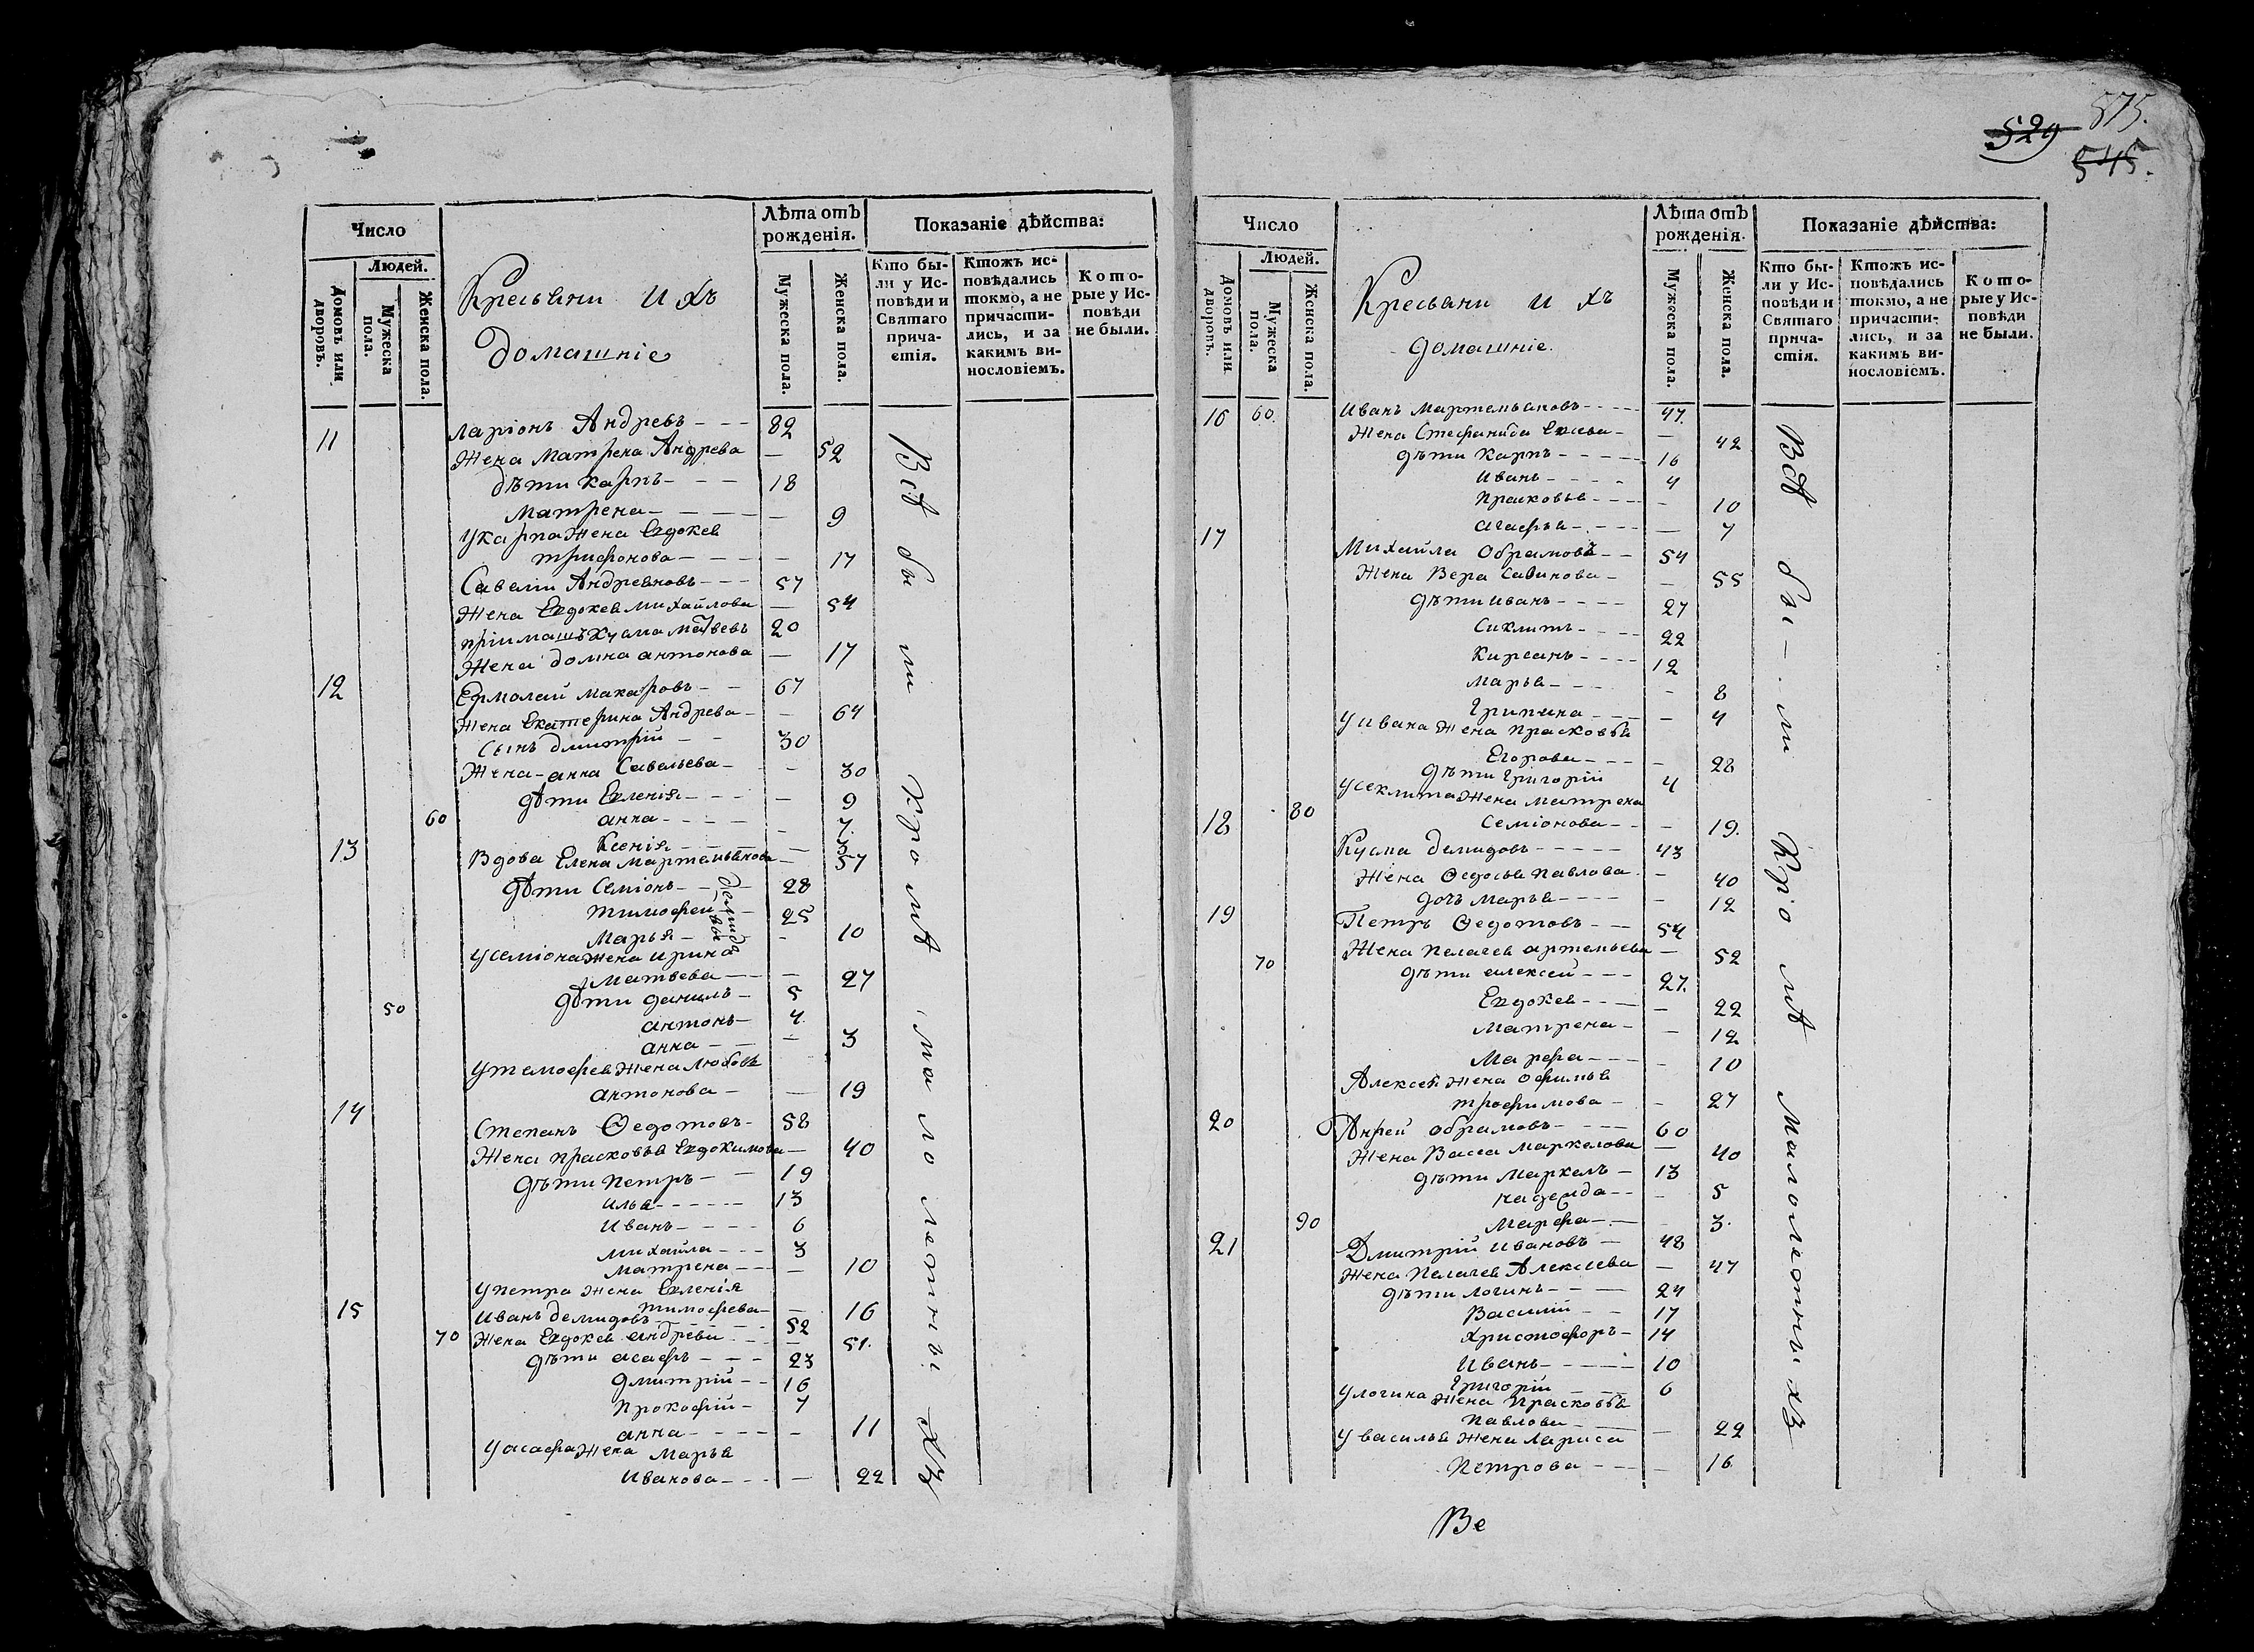 529 575.
545.
Число
Людей.
Домовъ или дворовъ.
Мужеска пола.
Женска пола.
Кресьяни ихъ
домашніе
Лѣта отъ рожденія.
Мужеска пола.
Женска пола.
Показаніе дѣйства:
Кто были у Исповѣди и Святаго причастія.
Ктожъ исповѣдались токмо, а не причастились, и за какимъ винословіемъ.
Которые у Исповѣди не были.
11 Ларіонъ Андревъ - - - 82
Жена Матрена Андрева — 52
дѣти Карпъ - - - 18
Матрена - - - — 9
У карпа Жена Евдокея
трифонова - - - — 17
Савелій Андреяновъ - - - 57
Жена Евдокея Михайлова — 54
пріимашъ Кузма Матвевъ 20
Жена домна антонова — 17
12 Ермолай Макаровъ - - 67
Жена Екатерина Андрева - — 64
Сынъ дмитрій - - 30
Жена - анна Савельева - — 30
дѣти Евленія - - - — 9
60 анна - - - - 7.
Ксенія - - - — 3
13 Вдова Елена Мартемьянова — 57
дѣти Семіонъ - - 28
тимофей - - 25
Демидовы
Марья - - 10
У семіона жена ирина
Матвева - - - — 27
дѣти данилъ - 5
50 антонъ - 4.
анна - - — 3
У темофея Жена Любовь
антонова - — 19
14 Степанъ Ѳедотовъ - 58
Жена прасковья Евдокимова — 40
дѣти Петръ - - 19
илья - - - - 13
Иванъ - - - - 6
михайла - - - 3
Матрена - - - — 10
У петра Жена Евленія
тимофева - — 16
15 Иванъ демидовъ - - - - 52
70 Жена Евдокея андрева - - - — 51.
дѣти асафъ - - - 23
дмитрій - - 16
прокофій - 7
анна - - - - - 11
У асафа Жена Марья
Иванова - - - — 22
Всѣ бы ли Кро мѣ ма ло летны хъ
Число
Людей.
Домовъ или дворовъ.
Мужеска пола.
Женска пола.
Кресьяни ихъ
домашніе.
Лѣта отъ рожденія.
Мужеска пола.
Женска пола.
Показаніе дѣйства:
Кто были у Исповѣди и Святаго причастія.
Ктожъ исповѣдались токмо, а не причастились, и за какимъ винословіемъ.
Которые у Исповѣди не были.
16 60. Иванъ Мартемьановъ - - - - 47.
Жена Стефанида — 42
дѣти Карпъ - - - - - 16
Иванъ - - - - 4
Прасковья - - - - 10
агафья - - - - — 7
17 Михайла Обрамовъ - - 54
Жена Вера Савинова - — 55
дѣти иванъ - - - - 27
Сиклитъ - - - - 22
Кирсанъ - - - - 12
Марья - - - - 8
Грипина - - - — 4
У ивана Жена Прасковья
Егорова - - - — 28
дѣти Григорій 4
У секлита Жена Матрена
80 Семіонова - - — 19.
18 Кузма демидовъ - - - - - 43
Жена Ѳедосья Павлова - — 40
дочь Марья - - - - - 12
19 Петръ Ѳедотовъ - - - 54
70 Жена Пелагея артемьева — 52
дѣти алексей - - - 27.
Евдокея - - - — 22
Матрена - — 12
Марфа - - - - 10
Алексей Жена Офимья
трофимова - — 27
20 Анрей обрамовъ - - - - 60
Жена Васса Маркелова — 40
дѣти Маркелъ - 13
надежда - - - 5
90 Марфа - - 3.
21 Дмитрій Ивановъ - 48
Жена Пелагея Алексеева — 47
дѣти логинъ - - - 24
Василій - - 17
Христофоръ - 14
Иванъ - - - - 10
Григорій - - - 6
У логина Жена Прасковья
Павлова - - — 22
У василья Жена Лариса
Петрова - - - — 16
Всѣ бы - - ли Кро мѣ Малолетны хъ
Ве